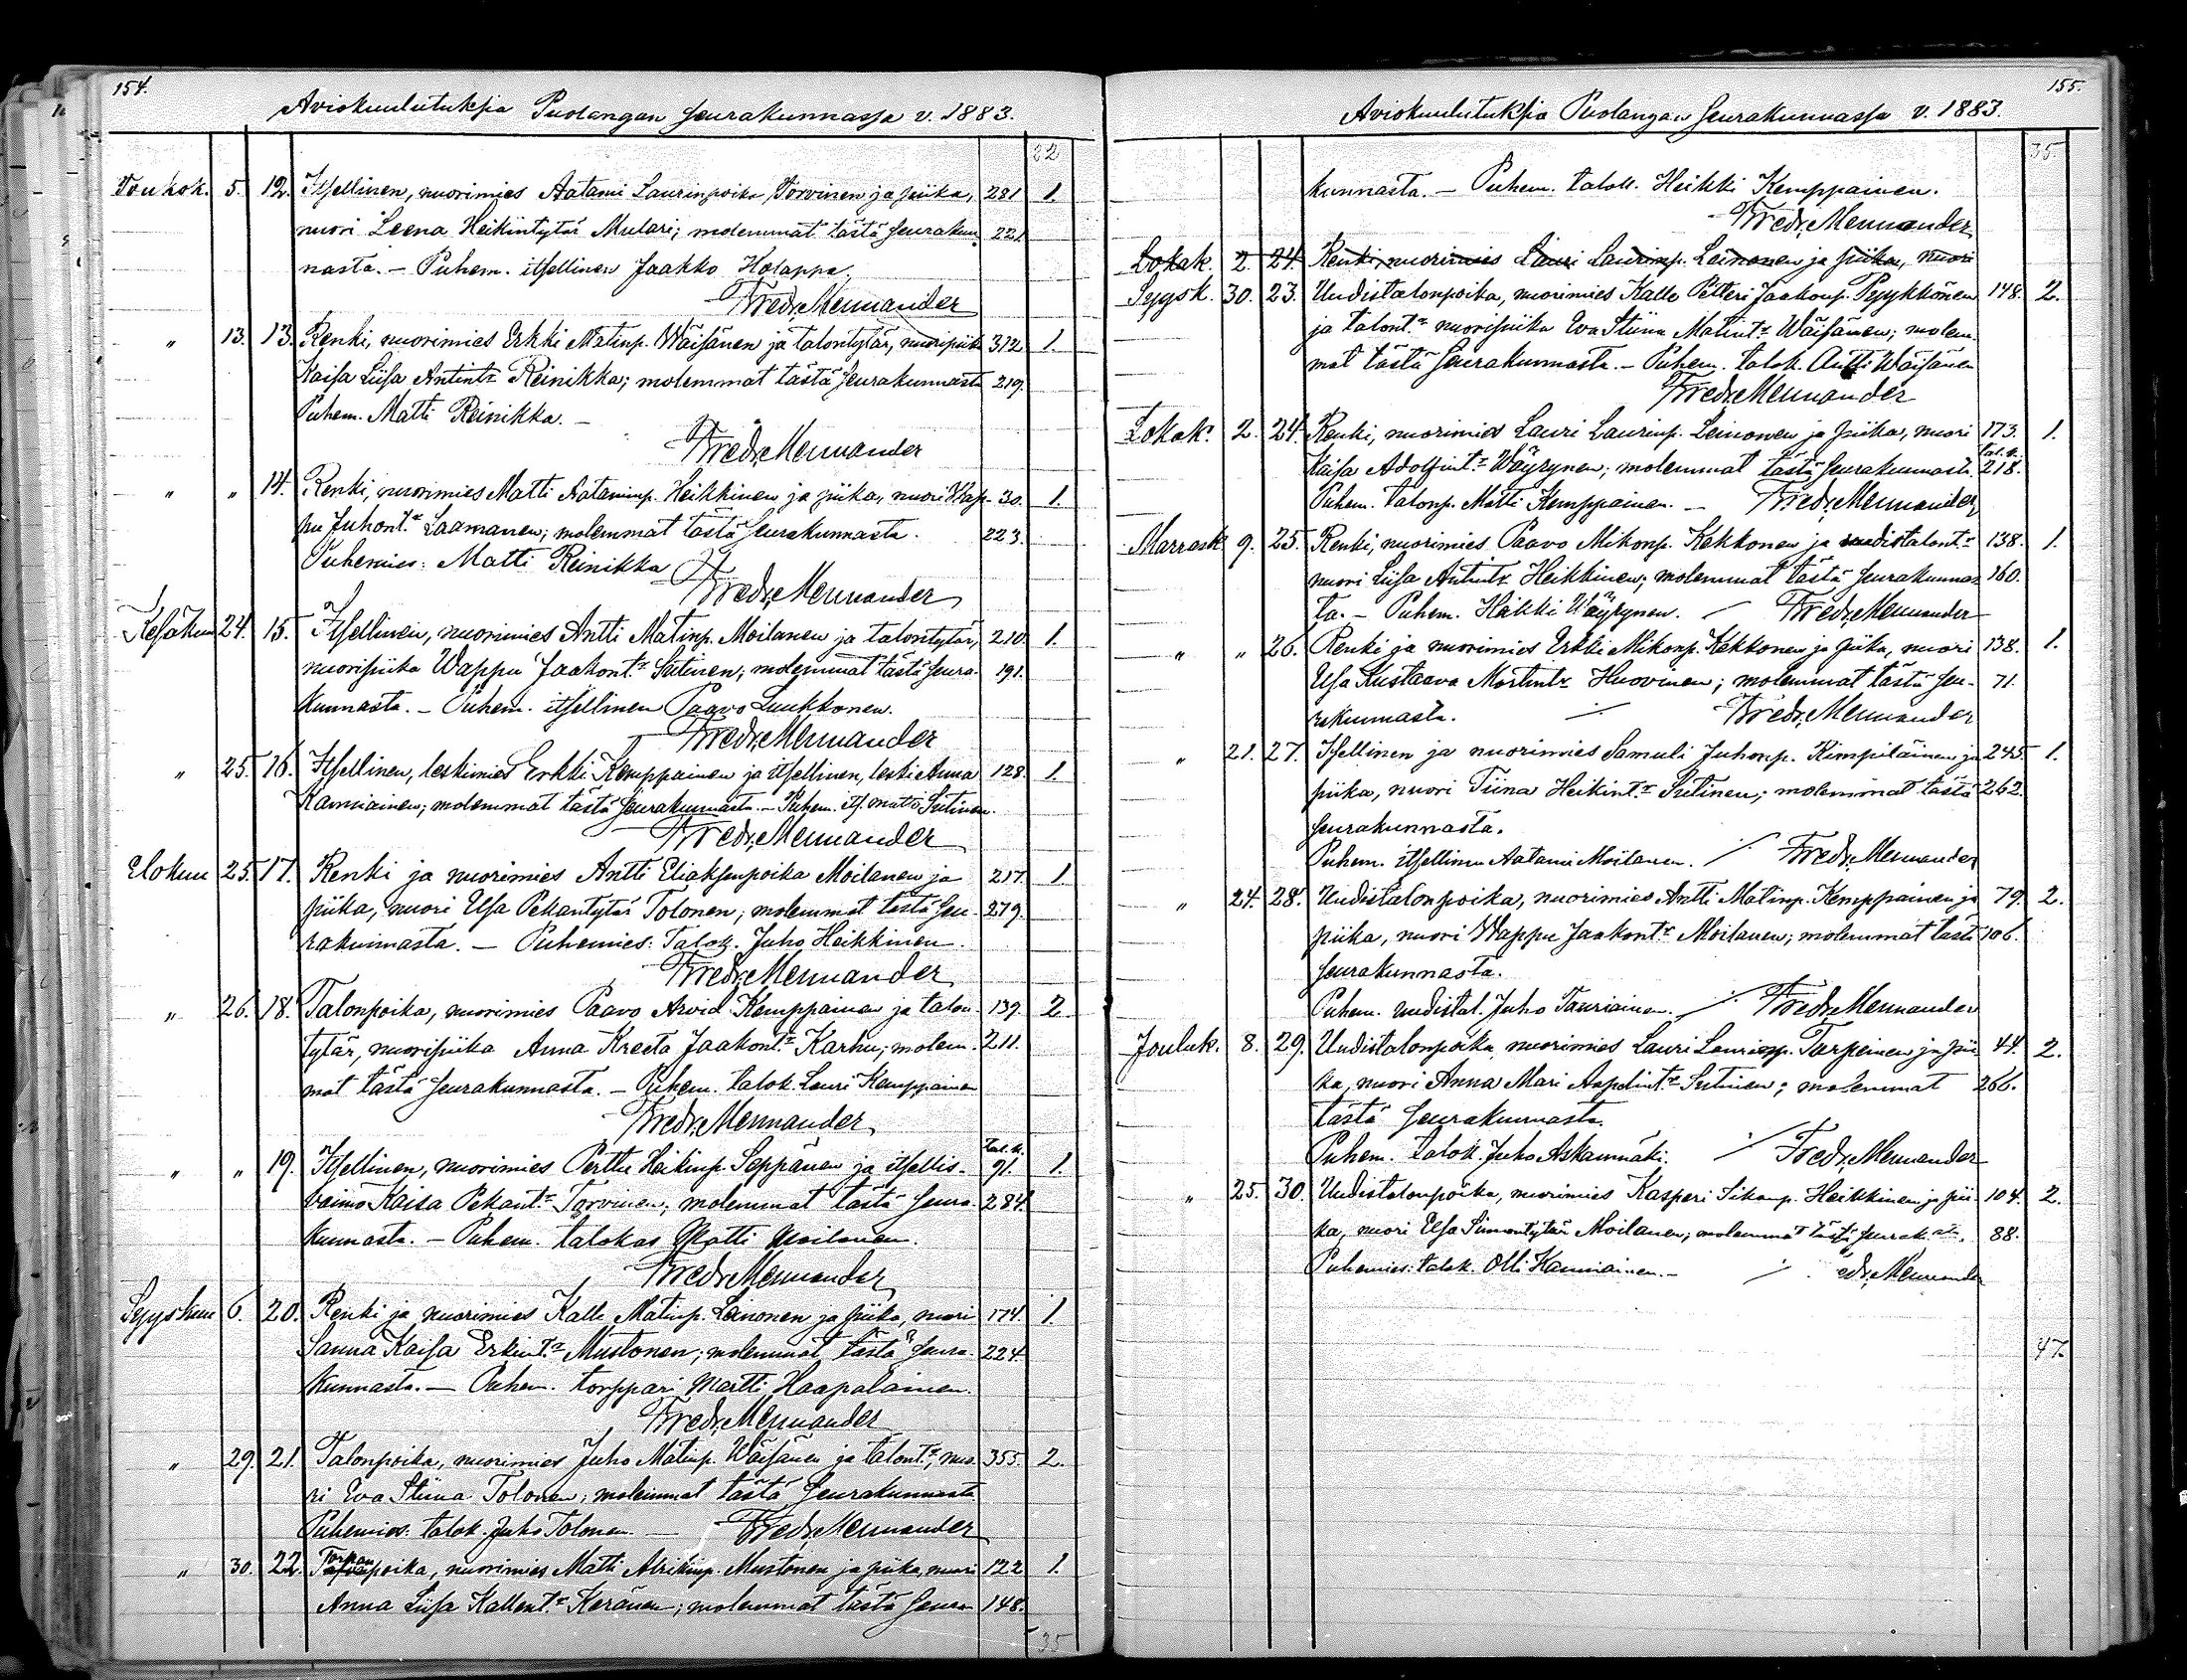 154.
Aviokuulutuksia Puolangan seurakunnassa v. 1883.
22
Toukok. 5. 12. Itsellinen, nuorimies Aatami Laurinpoika Torvinen ja piika, 281 1.
nuori Leena Heikintytär Mulari; molemmat tästä seurakun 221
nasta. – Puhem. itsellinen Jaakko Holappa.
Fredr. Mennander
" 13. 13. Renki, nuorimies Erkki Matinp. Wäisänen ja talontytär, nuoripiika 312 1.
Kaisa Liisa Antint:r Reinikka; molemmat tästä seurakunnasta 219.
Puhem. Matti Reinikka. –
Fredr. Mennander
" " 14. Renki, nuorimies Matti Aataminp. Heikkinen ja piika, nuori Wap- 30. 1.
pu Juhont:r Laamanen; molemmat tästä seurakunnasta. 223.
Puhemies: Matti Reinikka
Fredr. Mennander
Kesäkuu 24. 15. Itsellinen, nuorimies Antti Matinp. Moilanen ja talontytär, 210. 1.
nuoripiika Wappu Jaakont:r Sutinen; molemmat tästä seura- 191.
kunnasta. – Puhem. itsellinen Paavo Luukkonen.
Fredr. Mennander
" 25. 16. Itsellinen, leskimies Erkki Kemppainen ja itsellinen, leski Anna 128. 1.
Kanniainen; molemmat tästä seurakunnasta. – Puhem. its. Matti Sutinen.
Fredr. Mennander
Elokuu 25. 17. Renki ja nuorimies Antti Eliaksenpoika Moilanen ja 217. 1.
piika, nuori Elsa Pekantytär Tolonen; molemmat tästä seu- 279.
rakunnasta. – Puhemies: Talok. Juho Heikkinen.
Fredr. Mennander
" 26. 18. Talonpoika, nuorimies Paavo Arvid Kemppainen ja talon- 139. 2.
tytär, nuoripiika Anna Kreeta Jaakont:r Karhu; molem- 211.
mat tästä seurakunnasta. – Puhem. talok. Lauri Kemppainen
Fredr. Mennander
" " 19. Itsellinen, nuorimies Perttu Heikinp. Seppänen ja itsellis- 91. 1.
vaimo Kaisa Pekant:r Torvinen; molemmat tästä seura- 284.
kunnasta. – Puhem. talokas Matti Moilanen.
Fredr. Mennander
Syyskuu 6. 20. Renki ja nuorimies Kalle Matinp. Leinonen ja piika, nuori 174. 1.
Sanna Kaisa Erkint:r Mustonen; molemmat tästä seura- 224.
kunnasta. – Puhem. torppari Martti Haapalainen.
Fredr. Mennander
" 29. 21. Talonpoika, nuorimies Juho Matinp. Wäisänen ja talont:r, nuo- 355. 2.
ri Eva Stiina Tolonen; molemmat tästä seurakunnasta
Puhemies: talok. Juho Tolonen. – Fredr. Mennander
" 30. 22. Torpanpoika, nuorimies Matti Abrikinp. Mustonen ja piika, nuori 122 1.
Anna Liisa Kallent:r Keränen; molemmat tästä seura 148.
35
155.
Aviokuulutuksia Puolangan seurakunnassa v. 1883.
35.
kunnasta. – Puhem. talok. Heikki Kemppainen.
Fredr. Mennander
Lokak. 2. 24. Renki, nuorimies Lauri Laurinp. Leinonen ja piika, nuori
Syysk. 30. 23. Uudistalonpoika, nuorimies Kalle Petteri Jaakonp. Pyykkönen 148. 2.
ja talont:r nuoripiika Eva Stiina Matint:r Wäisänen; molem-
mat tästä seurakunnasta. – Puhem. talok. Antti Wäisänen
Fredr. Mennander
Lokak. 2. 24. Renki, nuorimies Lauri Laurinp. Leinonen ja piika, nuori 173. 1.
Kaisa Adolfint:r Wäyrynen; molemmat tästä seurakunnasta. 218.
Puhem. talonp. Matti Kemppainen. – Fredr. Mennander
Marrask. 9. 25. Renki, nuorimies Paavo Mikonp. Kekkonen ja uudistalont:r 138. 1.
nuori Liisa Antint:r Heikkinen; molemmat tästä seurakunnas- 160.
ta. – Puhem. Heikki Wäyrynen. Fredr. Mennander
" " 26. Renki ja nuorimies Erkki Mikonp. Kekkonen ja piika, nuori 138. 1.
Elsa Kustaava Martint:r Huovinen; molemmat tästä seu- 71.
rakunnasta. Fredr. Mennander
" 21. 27. Itsellinen ja nuorimies Samuli Juhonp. Kimpiläinen ja 245. 1.
piika, nuori Tiina Heikint:r Sutinen; molemmat tästä 262.
seurakunnasta.
Puhem. itsellinen Aatami Moilanen. Fredr. Mennander
" 24. 28. Uudistalonpoika, nuorimies Antti Matinp. Kemppainen ja 79. 2.
piika, nuori Wappu Jaakont:r Moilanen; molemmat tästä 106.
seurakunnasta.
Puhem. uudistal. Juho Tauriainen. Fredr. Mennander
Jouluk. 8. 29. Uudistalonpoika, nuorimies Lauri Laurinp. Tarpeinen ja pii- 44. 2.
ka, nuori Anna Mari Sutinen; molemmat 266.
tästä seurakunnasta.
Puhem. talok. Juho Askanmäki. Fredr. Mennander
" 25. 30. Uudistalonpoika, nuorimies Kasperi Heikkinen ja pii- 104. 2.
ka, nuori Elsa Simontytär Moilanen; molemmat tästä seurak:sta. 88.
Puhemies: talok. Olli Kanniainen. – edr. Mennander
47.